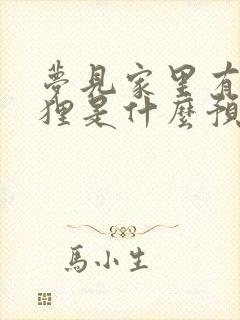 夢見家里有
狸是什麽預
馬小生